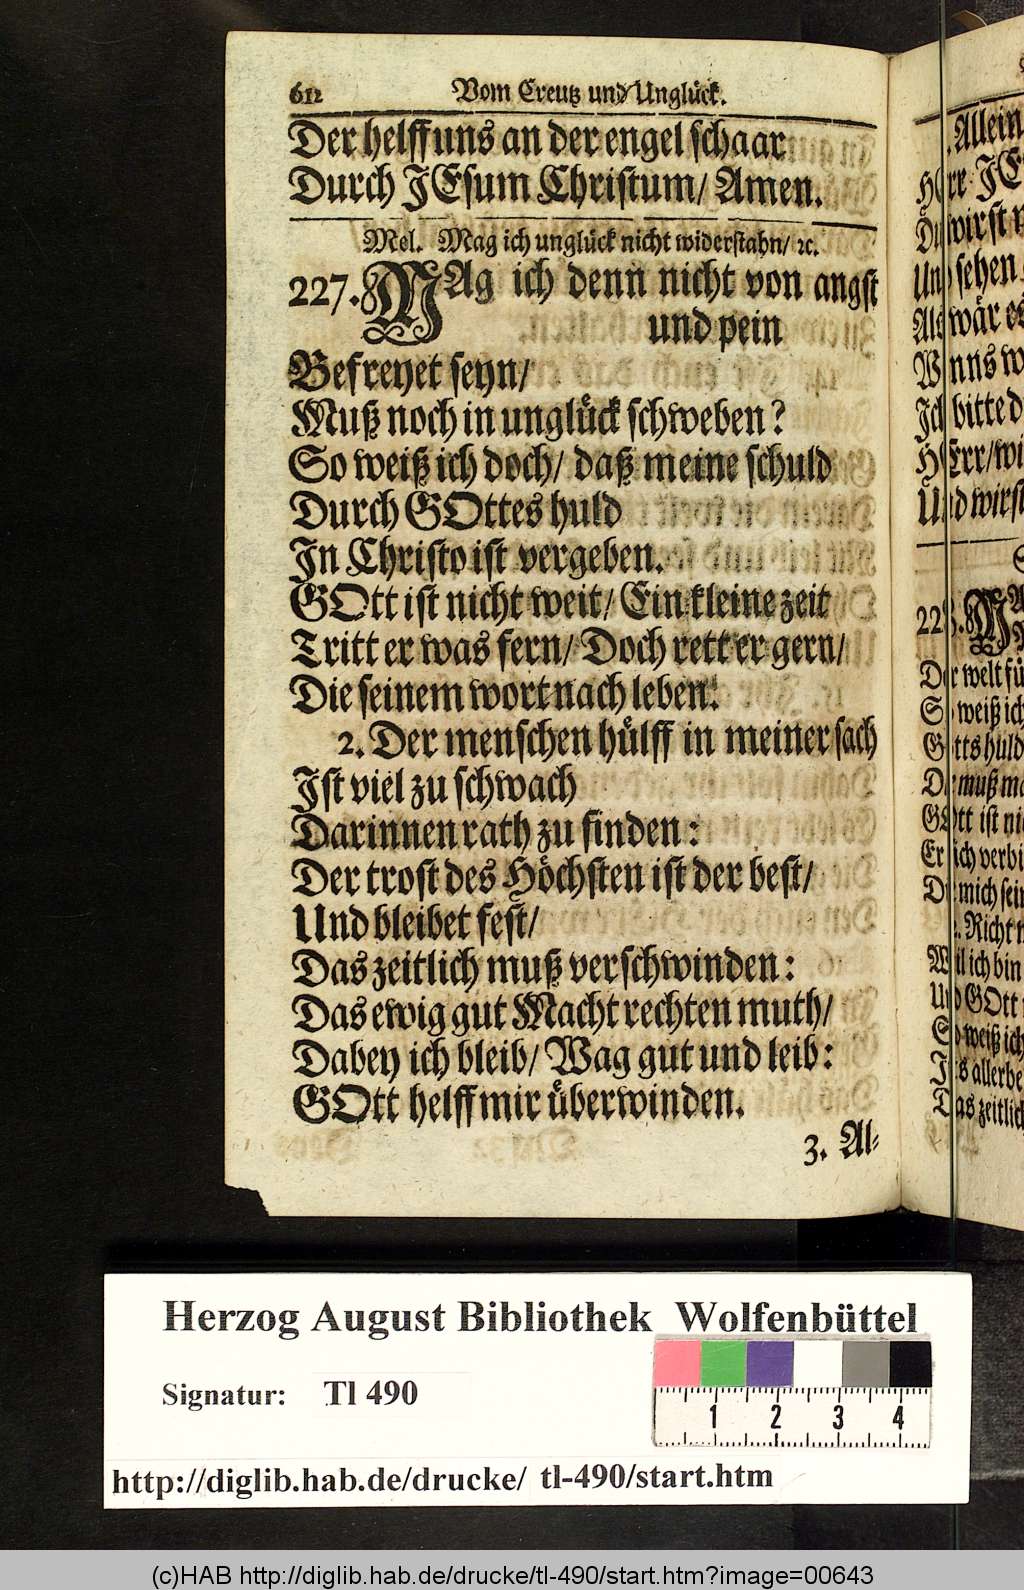 612 Vom Creutz und Unglück.
Der helff uns an der engel schaar
Durch JEsum Christum/ Amen.
Mel. Mag ich unglück nicht widerstahn/ ꝛc.
227. MAg ich denn nicht von angst
und pein
Befreyet seyn/
Muß noch in unglück schweben?
So weiß ich doch/ daß meine schuld
Durch GOttes huld
In Christo ist vergeben.
GOtt ist nicht weit/ Ein kleine zeit
Tritt er was fern/ Doch rett er gern/
Die seinem wort nach leben.
2. Der menschen hülff in meiner sach
Ist viel zu schwach
Darinnen rath zu finden:
Der trost des Höchsten ist der best/
Und bleibet fest/
Das zeitlich muß verschwinden:
Das ewig gut Macht rechten muth/
Dabey ich bleib/ Wag gut und leib:
GOtt helff mir überwinden.
3. Al-
Allein
wirst
sehen
wär
bitte
Und wirst
Der welt
weiß ich
huld
muß
GOtt ist
ich
mich
Richt
ich bin
GOtt
weiß ich
Das zeitlich
Herzog August Bibliothek Wolfenbüttel
Signatur: Tl 490
1 2 3 4
http://diglib.hab.de/drucke/ tl-490/start.htm
(c)HAB http://diglib.hab.de/drucke/tl-490/start.htm?image=00643